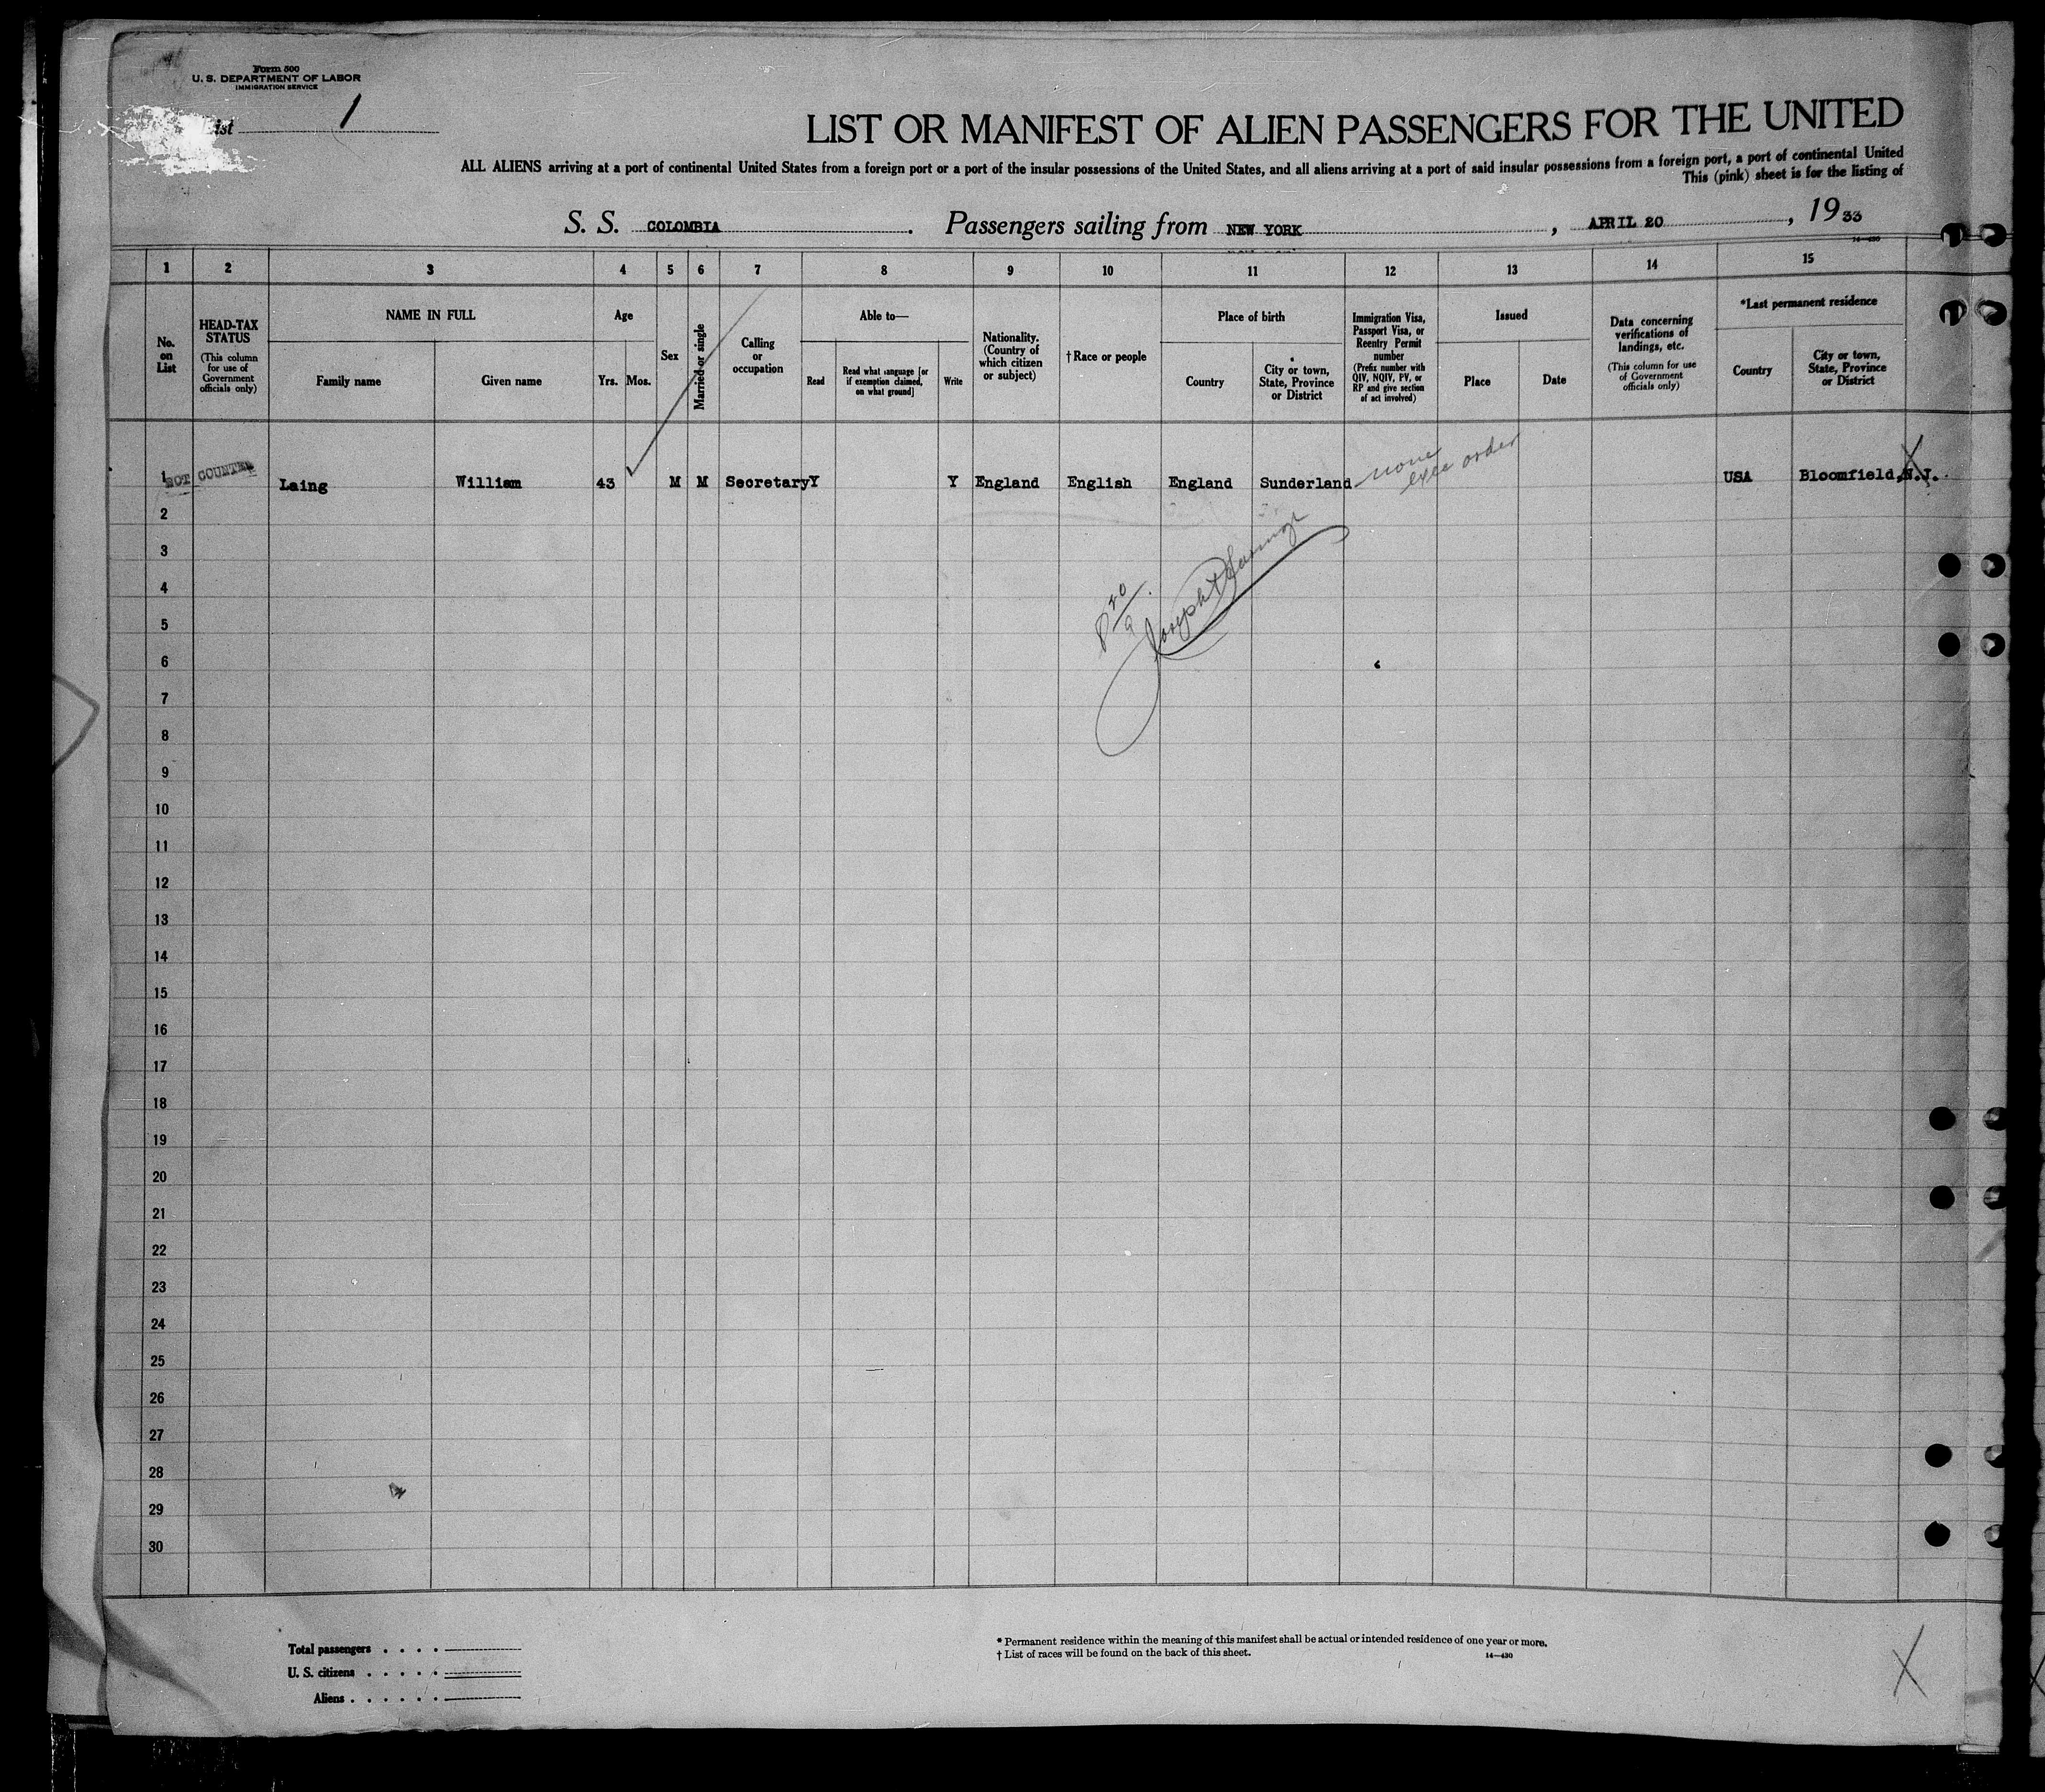 Form 500
U. S. DEPARTMENT OF LABOR
IMMIGRATION SERVICE
List 1
LIST OR MANIFEST OF ALIEN PASSENGERS FOR THE UNITED
ALL ALIENS arriving at a port of continental United States from a foreign port or a port of the insular possessions of the United States, and all aliens arriving at a port of said insular possessions from a foreign port, a port of continental United
This (pink) sheet is for the listing of
S. S. COLOMBIA . Passengers sailing from NEW YORK , APRIL 20 , 1933
14—430
1 2 3 4 5 6 7 8 9 10 11 12 13 14 15
No. on List
HEAD-TAX STATUS
(This column for use of Government officials only)
NAME IN FULL
Family name
Given name
Age
Yrs. Mos.
Sex
Married or single
Calling or occupation
Able to—
Read
Read what language [or if exemption claimed, on what ground]
Write
Nationality. (Country of which citizen or subject)
† Race or people
Place of birth
Country
City or town, State, Province or District
Immigration Visa, Passport Visa, or Reentry Permit number
(Prefix number with QIV, NQIV, PV, or RP and give section of act involved)
Issued
Place
Date
Data concerning verifications of landings, etc.
(This column for use of Government officials only)
*Last permanent residence
Country
City or town, State, Province or District
1 NOT COUNTED Laing William 43 M M Secretary Y Y England English England Sunderland none exec order USA Bloomfield, N.J.
2
3
4
5
6
7
8
9
10
11
12
13
14
15
16
17
18
19
20
21
22
23
24
25
26
27
28
29
30
Total passengers . . . .
U. S. citizens . . . . .
Aliens . . . . . .
* Permanent residence within the meaning of this manifest shall be actual or intended residence of one year or more.
† List of races will be found on the back of this sheet.
14—430
X